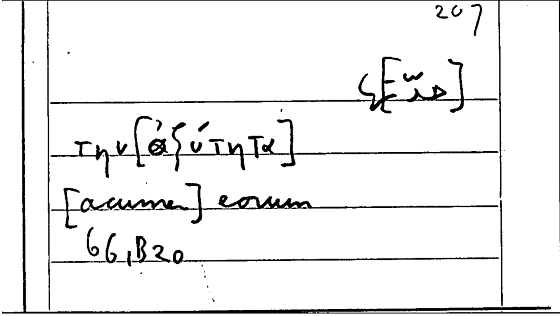 207
την [ὀξύτητα]
[acumen] eorum
66, B20